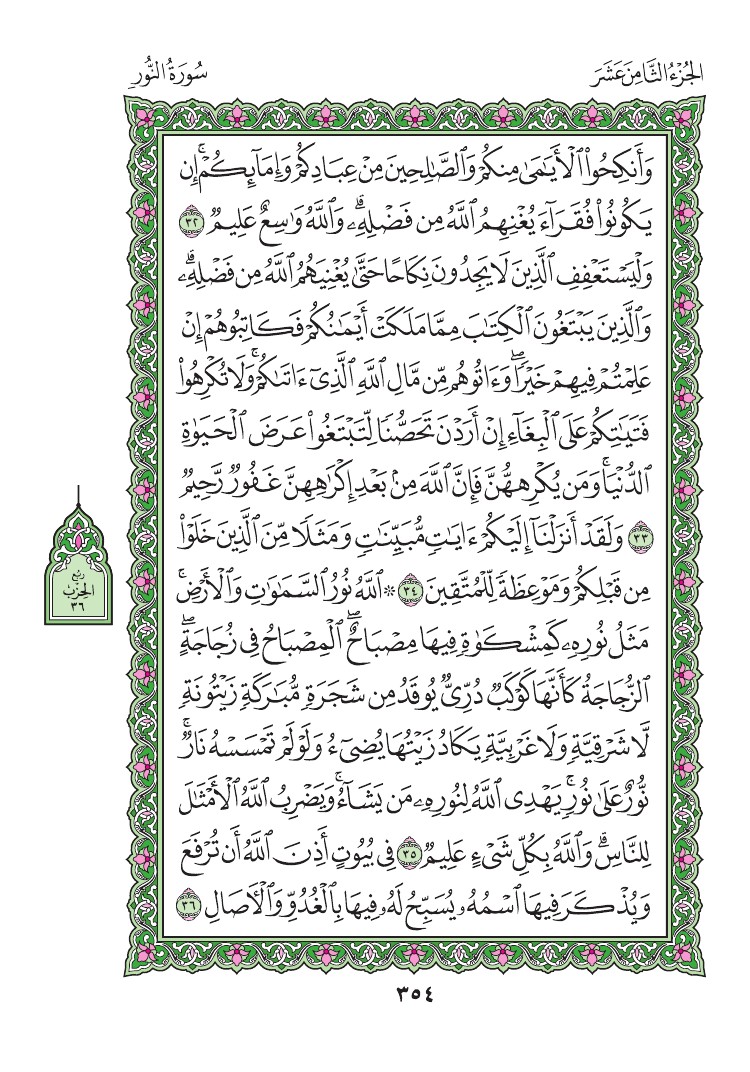 الجُزْءُ الثَّامِنَ عَشَرَ
سُورَةُ النُّورِ
وَأَنكِحُوا۟ ٱلْأَيَـٰمَىٰ مِنكُمْ وَٱلصَّـٰلِحِينَ مِنْ عِبَادِكُمْ وَإِمَآئِكُمْ ۚ إِن
يَكُونُوا۟ فُقَرَآءَ يُغْنِهِمُ ٱللَّهُ مِن فَضْلِهِۦ ۗ وَٱللَّهُ وَٰسِعٌ عَلِيمٌ ٣٢
وَلْيَسْتَعْفِفِ ٱلَّذِينَ لَا يَجِدُونَ نِكَاحًا حَتَّىٰ يُغْنِيَهُمُ ٱللَّهُ مِن فَضْلِهِۦ ۗ
وَٱلَّذِينَ يَبْتَغُونَ ٱلْكِتَـٰبَ مِمَّا مَلَكَتْ أَيْمَـٰنُكُمْ فَكَاتِبُوهُمْ إِنْ
عَلِمْتُمْ فِيهِمْ خَيْرًا ۖ وَءَاتُوهُم مِّن مَّالِ ٱللَّهِ ٱلَّذِىٓ ءَاتَىٰكُمْ ۚ وَلَا تُكْرِهُوا۟
فَتَيَـٰتِكُمْ عَلَى ٱلْبِغَآءِ إِنْ أَرَدْنَ تَحَصُّنًا لِّتَبْتَغُوا۟ عَرَضَ ٱلْحَيَوٰةِ
ٱلدُّنْيَا ۚ وَمَن يُكْرِههُّنَّ فَإِنَّ ٱللَّهَ مِنۢ بَعْدِ إِكْرَٰهِهِنَّ غَفُورٌ رَّحِيمٌ
٣٣ وَلَقَدْ أَنزَلْنَآ إِلَيْكُمْ ءَايَـٰتٍ مُّبَيِّنَـٰتٍ وَمَثَلًا مِّنَ ٱلَّذِينَ خَلَوْا۟
مِن قَبْلِكُمْ وَمَوْعِظَةً لِّلْمُتَّقِينَ ٣٤ ۞ ٱللَّهُ نُورُ ٱلسَّمَـٰوَٰتِ وَٱلْأَرْضِ ۚ
مَثَلُ نُورِهِۦ كَمِشْكَوٰةٍ فِيهَا مِصْبَاحٌ ۖ ٱلْمِصْبَاحُ فِى زُجَاجَةٍ ۖ
ٱلزُّجَاجَةُ كَأَنَّهَا كَوْكَبٌ دُرِّىٌّ يُوقَدُ مِن شَجَرَةٍ مُّبَـٰرَكَةٍ زَيْتُونَةٍ
لَّا شَرْقِيَّةٍ وَلَا غَرْبِيَّةٍ يَكَادُ زَيْتُهَا يُضِىٓءُ وَلَوْ لَمْ تَمْسَسْهُ نَارٌ ۚ
نُّورٌ عَلَىٰ نُورٍ ۗ يَهْدِى ٱللَّهُ لِنُورِهِۦ مَن يَشَآءُ ۚ وَيَضْرِبُ ٱللَّهُ ٱلْأَمْثَـٰلَ
لِلنَّاسِ ۗ وَٱللَّهُ بِكُلِّ شَىْءٍ عَلِيمٌ ٣٥ فِى بُيُوتٍ أَذِنَ ٱللَّهُ أَن تُرْفَعَ
وَيُذْكَرَ فِيهَا ٱسْمُهُۥ يُسَبِّحُ لَهُۥ فِيهَا بِٱلْغُدُوِّ وَٱلْـَٔاصَالِ ٣٦
رُبْعُ
الحِزْبِ
٣٦
٣٥٤